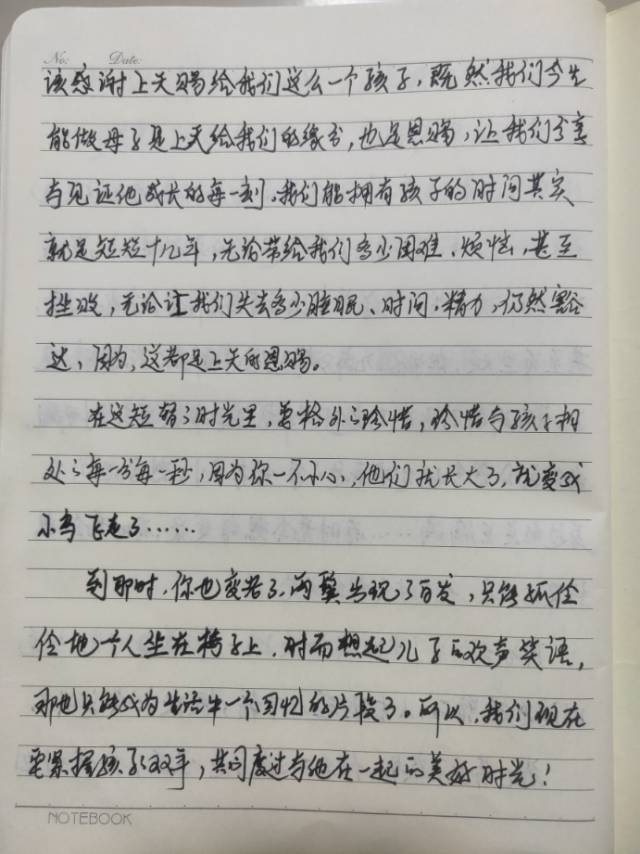 No:        Date:
该感谢上天赐给我们这么一个孩子,既然我们今生
能做母子是上天给我们的缘分,也是恩赐,让我们分享
与见证他成长的每一刻,我们能拥有孩子的时间其实
就是短短十几年,无论带给我们多少困难、烦恼,甚至
挫败,无论让我们失去多少睡眠、时间,精力,仍然豁
达,因为,这都是上天的恩赐。
在这短暂之时光里,要格外之珍惜,珍惜与孩子相
处之每一分每一秒,因为你一不小心,他们就长大了,就变成
小鸟飞走了……
到那时,你也变老了,两鬓出现了白发,只能孤伶
伶地一个人坐在椅子上,时而想起儿子的欢声笑语,
那也只能成为生活中一个回忆的片段了。所以,我们现在
要紧握孩子双手,共同度过与他在一起的美好时光!
NOTEBOOK